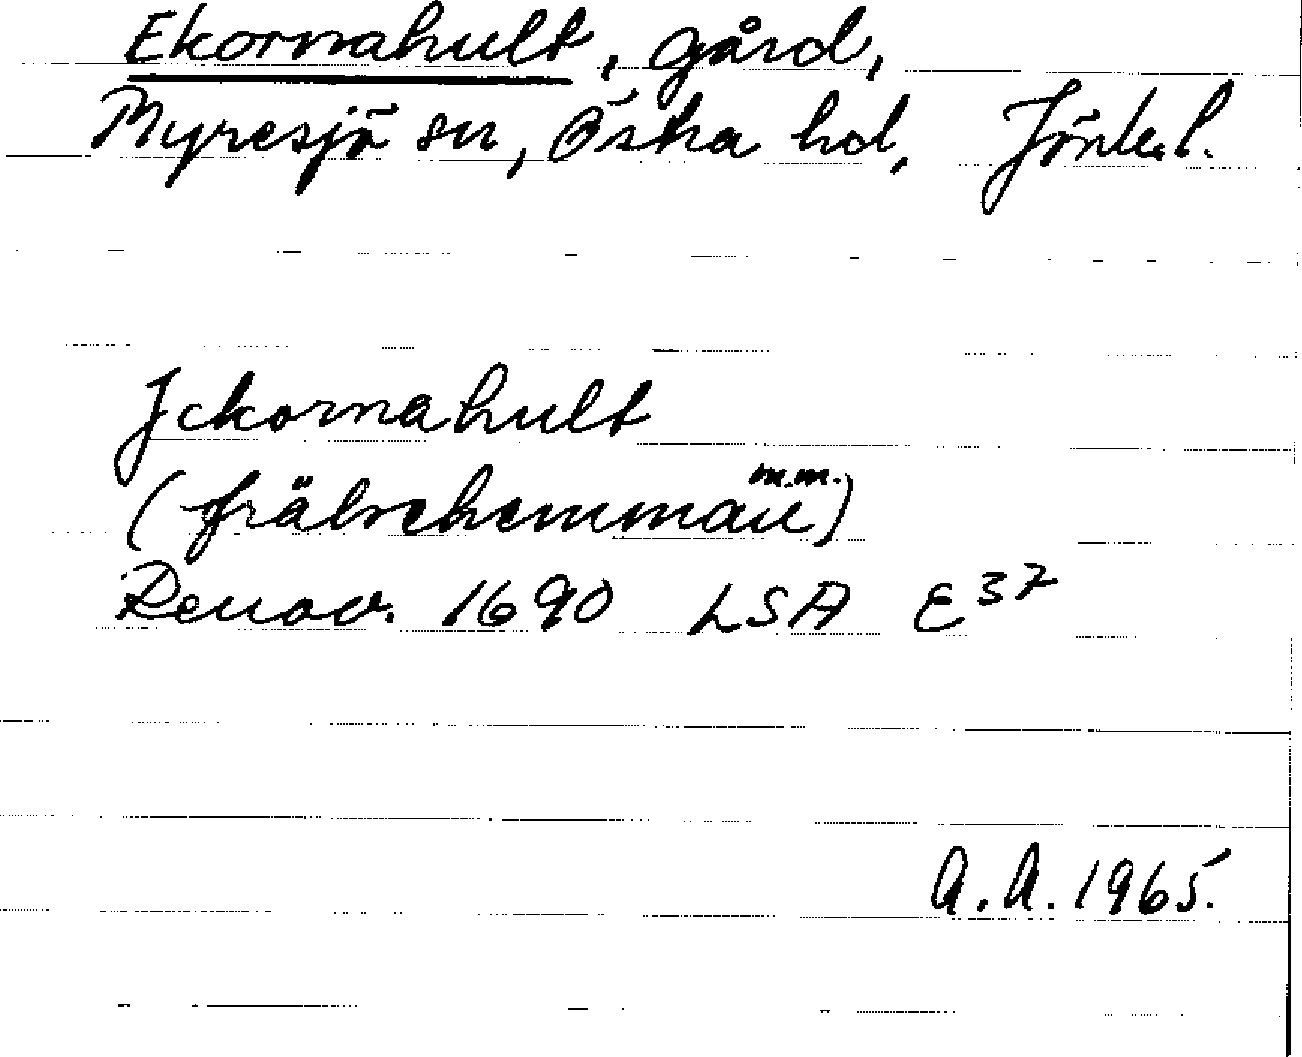 Ekornahult, gård,
Myresjö sn, Östra hd, Jönk. l.
Jckornahult
(frälsehemman m.m.)
Renov. 1690 LSA E 37
A. A. 1965.